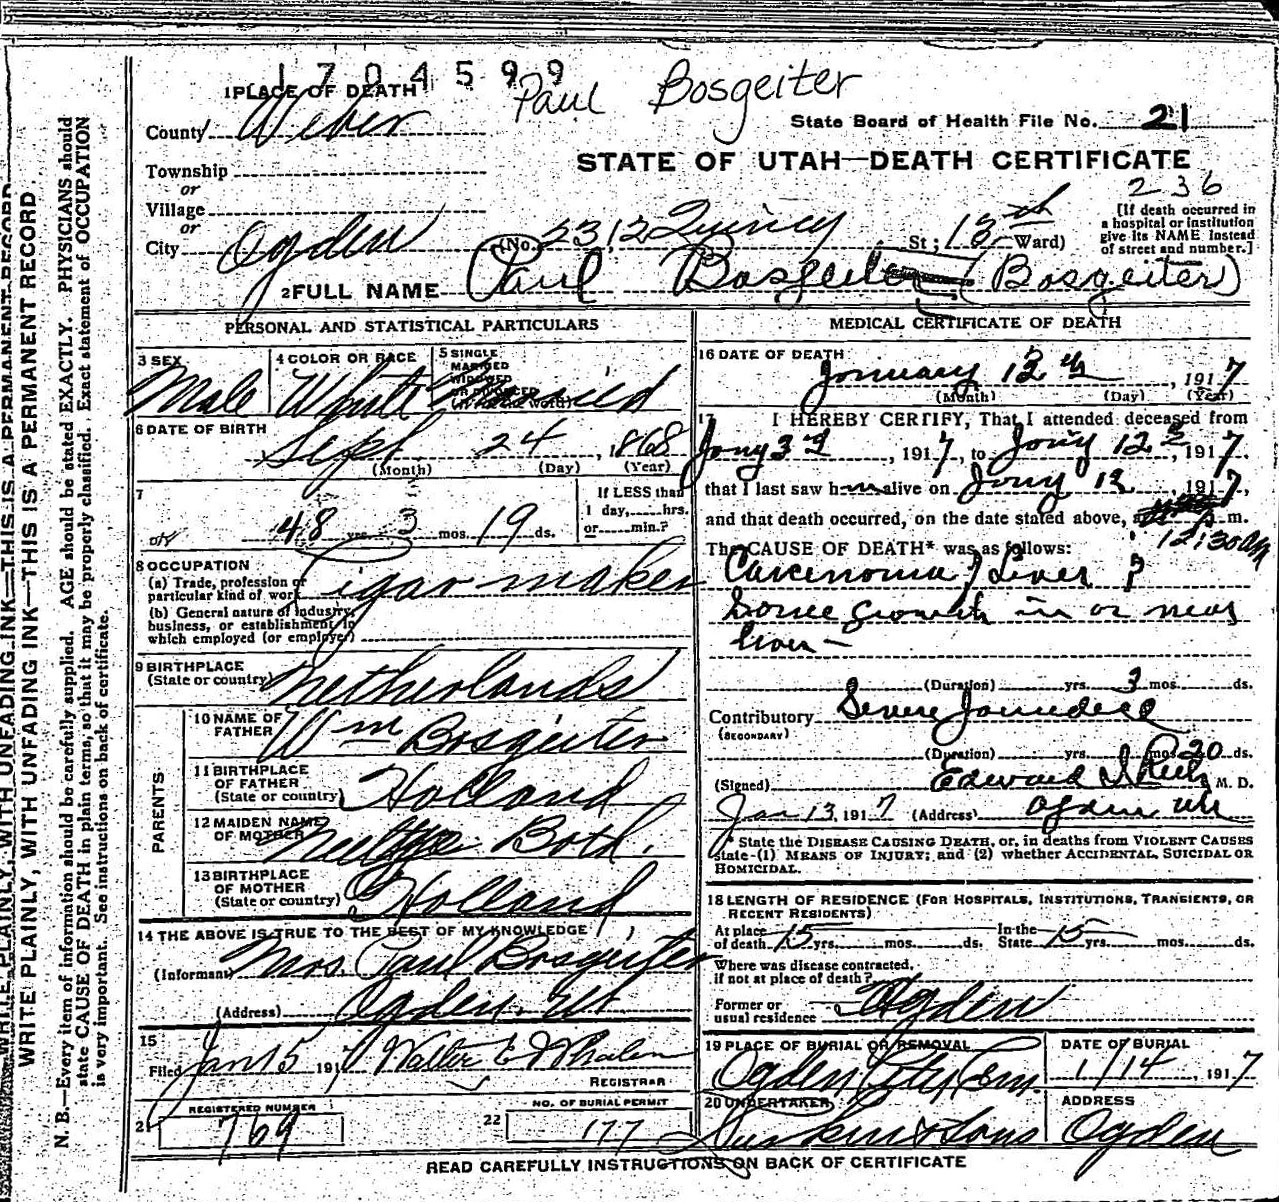 1704599
Paul Bosgeiter
1 PLACE OF DEATH
County Weber
State Board of Health File No. 21
STATE OF UTAH—DEATH CERTIFICATE
Township
or
Village
or
236
[If death occurred in
a hospital or institution
give its NAME instead
of street and number.]
City Ogden (No. 2312 Quincy St; 12th Ward)
2 FULL NAME Paul Bosgeiter (Bosgeiter)
PERSONAL AND STATISTICAL PARTICULARS
3 SEX
Male
4 COLOR OR RACE
White
5 SINGLE
MARRIED
WIDOWED
OR DIVORCED
Married
6 DATE OF BIRTH
Sept 24, 1868
(Month) (Day) (Year)
7
48 yrs 3 mos. 19 ds.
If LESS than
1 day, hrs.
or min.?
8 OCCUPATION
(a) Trade, profession or
particular kind of work Cigar maker
(b) General nature of industry,
business, or establishment in
which employed (or employer)
9 BIRTHPLACE
(State or country) Netherlands
PARENTS
10 NAME OF
FATHER Wm Bosgeiter
11 BIRTHPLACE
OF FATHER
(State or country) Holland
12 MAIDEN NAME
OF MOTHER Both.
13 BIRTHPLACE
OF MOTHER
(State or country) Holland
14 THE ABOVE IS TRUE TO THE BEST OF MY KNOWLEDGE
(Informant) Mrs. Paul Bosgeiter
(Address) Ogden. Ut
15
Filed Jan 15 1917 Walter E Whalen
REGISTRAR
21 REGISTERED NUMBER
769
22 NO. OF BURIAL PERMIT
177
MEDICAL CERTIFICATE OF DEATH
16 DATE OF DEATH
January 12th, 1917
(Month) (Day) (Year)
17 I HEREBY CERTIFY, That I attended deceased from
Jany 3d, 1917, to Jany 12, 1917,
that I last saw him alive on Jany 12, 1917,
and that death occurred, on the date stated above, at m.
12:30 am
The CAUSE OF DEATH* was as follows:
Carcenoma of Liver ?
Some growth in or near
liver —
(Duration) yrs. 3 mos. ds.
Contributory Severe Jaundice
(SECONDARY)
(Duration) yrs. mos. 20 ds.
(Signed) Edward I M. D.
Jan 13, 1917 (Address) Ogden Ut
* State the DISEASE CAUSING DEATH, or, in deaths from VIOLENT CAUSES
state (1) MEANS OF INJURY; and (2) whether ACCIDENTAL, SUICIDAL OR
HOMICIDAL.
18 LENGTH OF RESIDENCE (FOR HOSPITALS, INSTITUTIONS, TRANSIENTS, OR
RECENT RESIDENTS)
At place
of death 15 yrs. mos. ds. In the
State 15 yrs. mos. ds.
Where was disease contracted,
if not at place of death?
Former or
usual residence Ogden
19 PLACE OF BURIAL OR REMOVAL
Ogden City Cem
DATE OF BURIAL
1/14, 1917
20 UNDERTAKER
& Sons
ADDRESS
Ogden
READ CAREFULLY INSTRUCTIONS ON BACK OF CERTIFICATE
WRITE PLAINLY, WITH UNFADING INK—THIS IS A PERMANENT RECORD
WRITE PLAINLY, WITH UNFADING INK—THIS IS A PERMANENT RECORD
N. B.—Every item of information should be carefully supplied. AGE should be stated EXACTLY. PHYSICIANS should
state CAUSE OF DEATH in plain terms, so that it may be properly classified. Exact statement of OCCUPATION
is very important. See instructions on back of certificate.